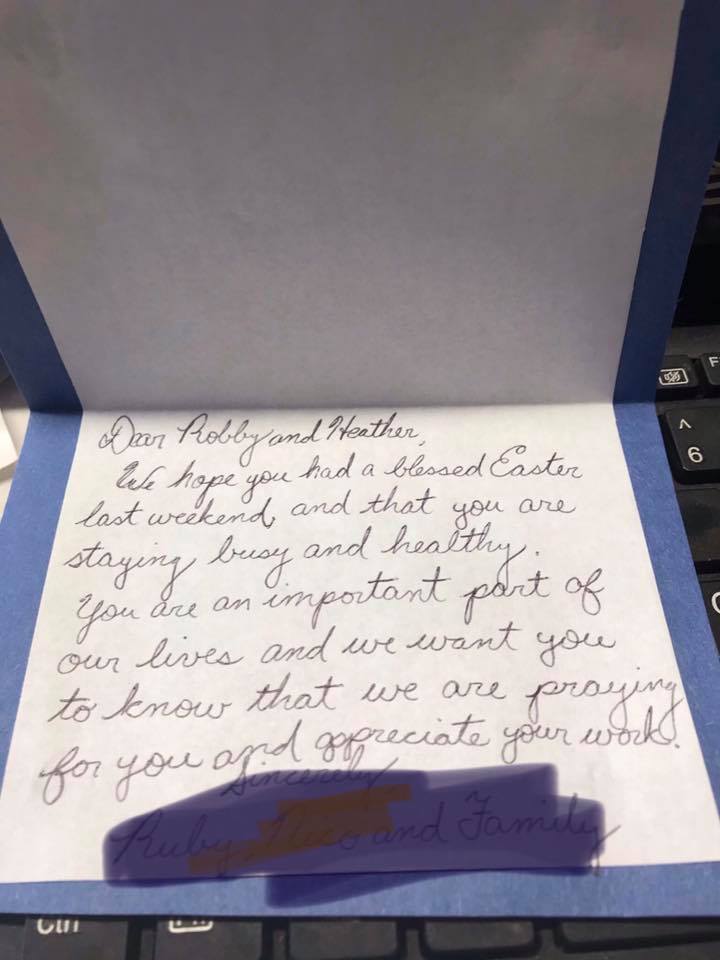 Dear Robby and Heather,
We hope you had a blessed Easter
last weekend, and that you are
staying busy and healthy.
You are an important part of
our lives and we want you
to know that we are praying
for you and appreciate your work.
Sincerely,
Ruby, and Family
^
6
Ctrl